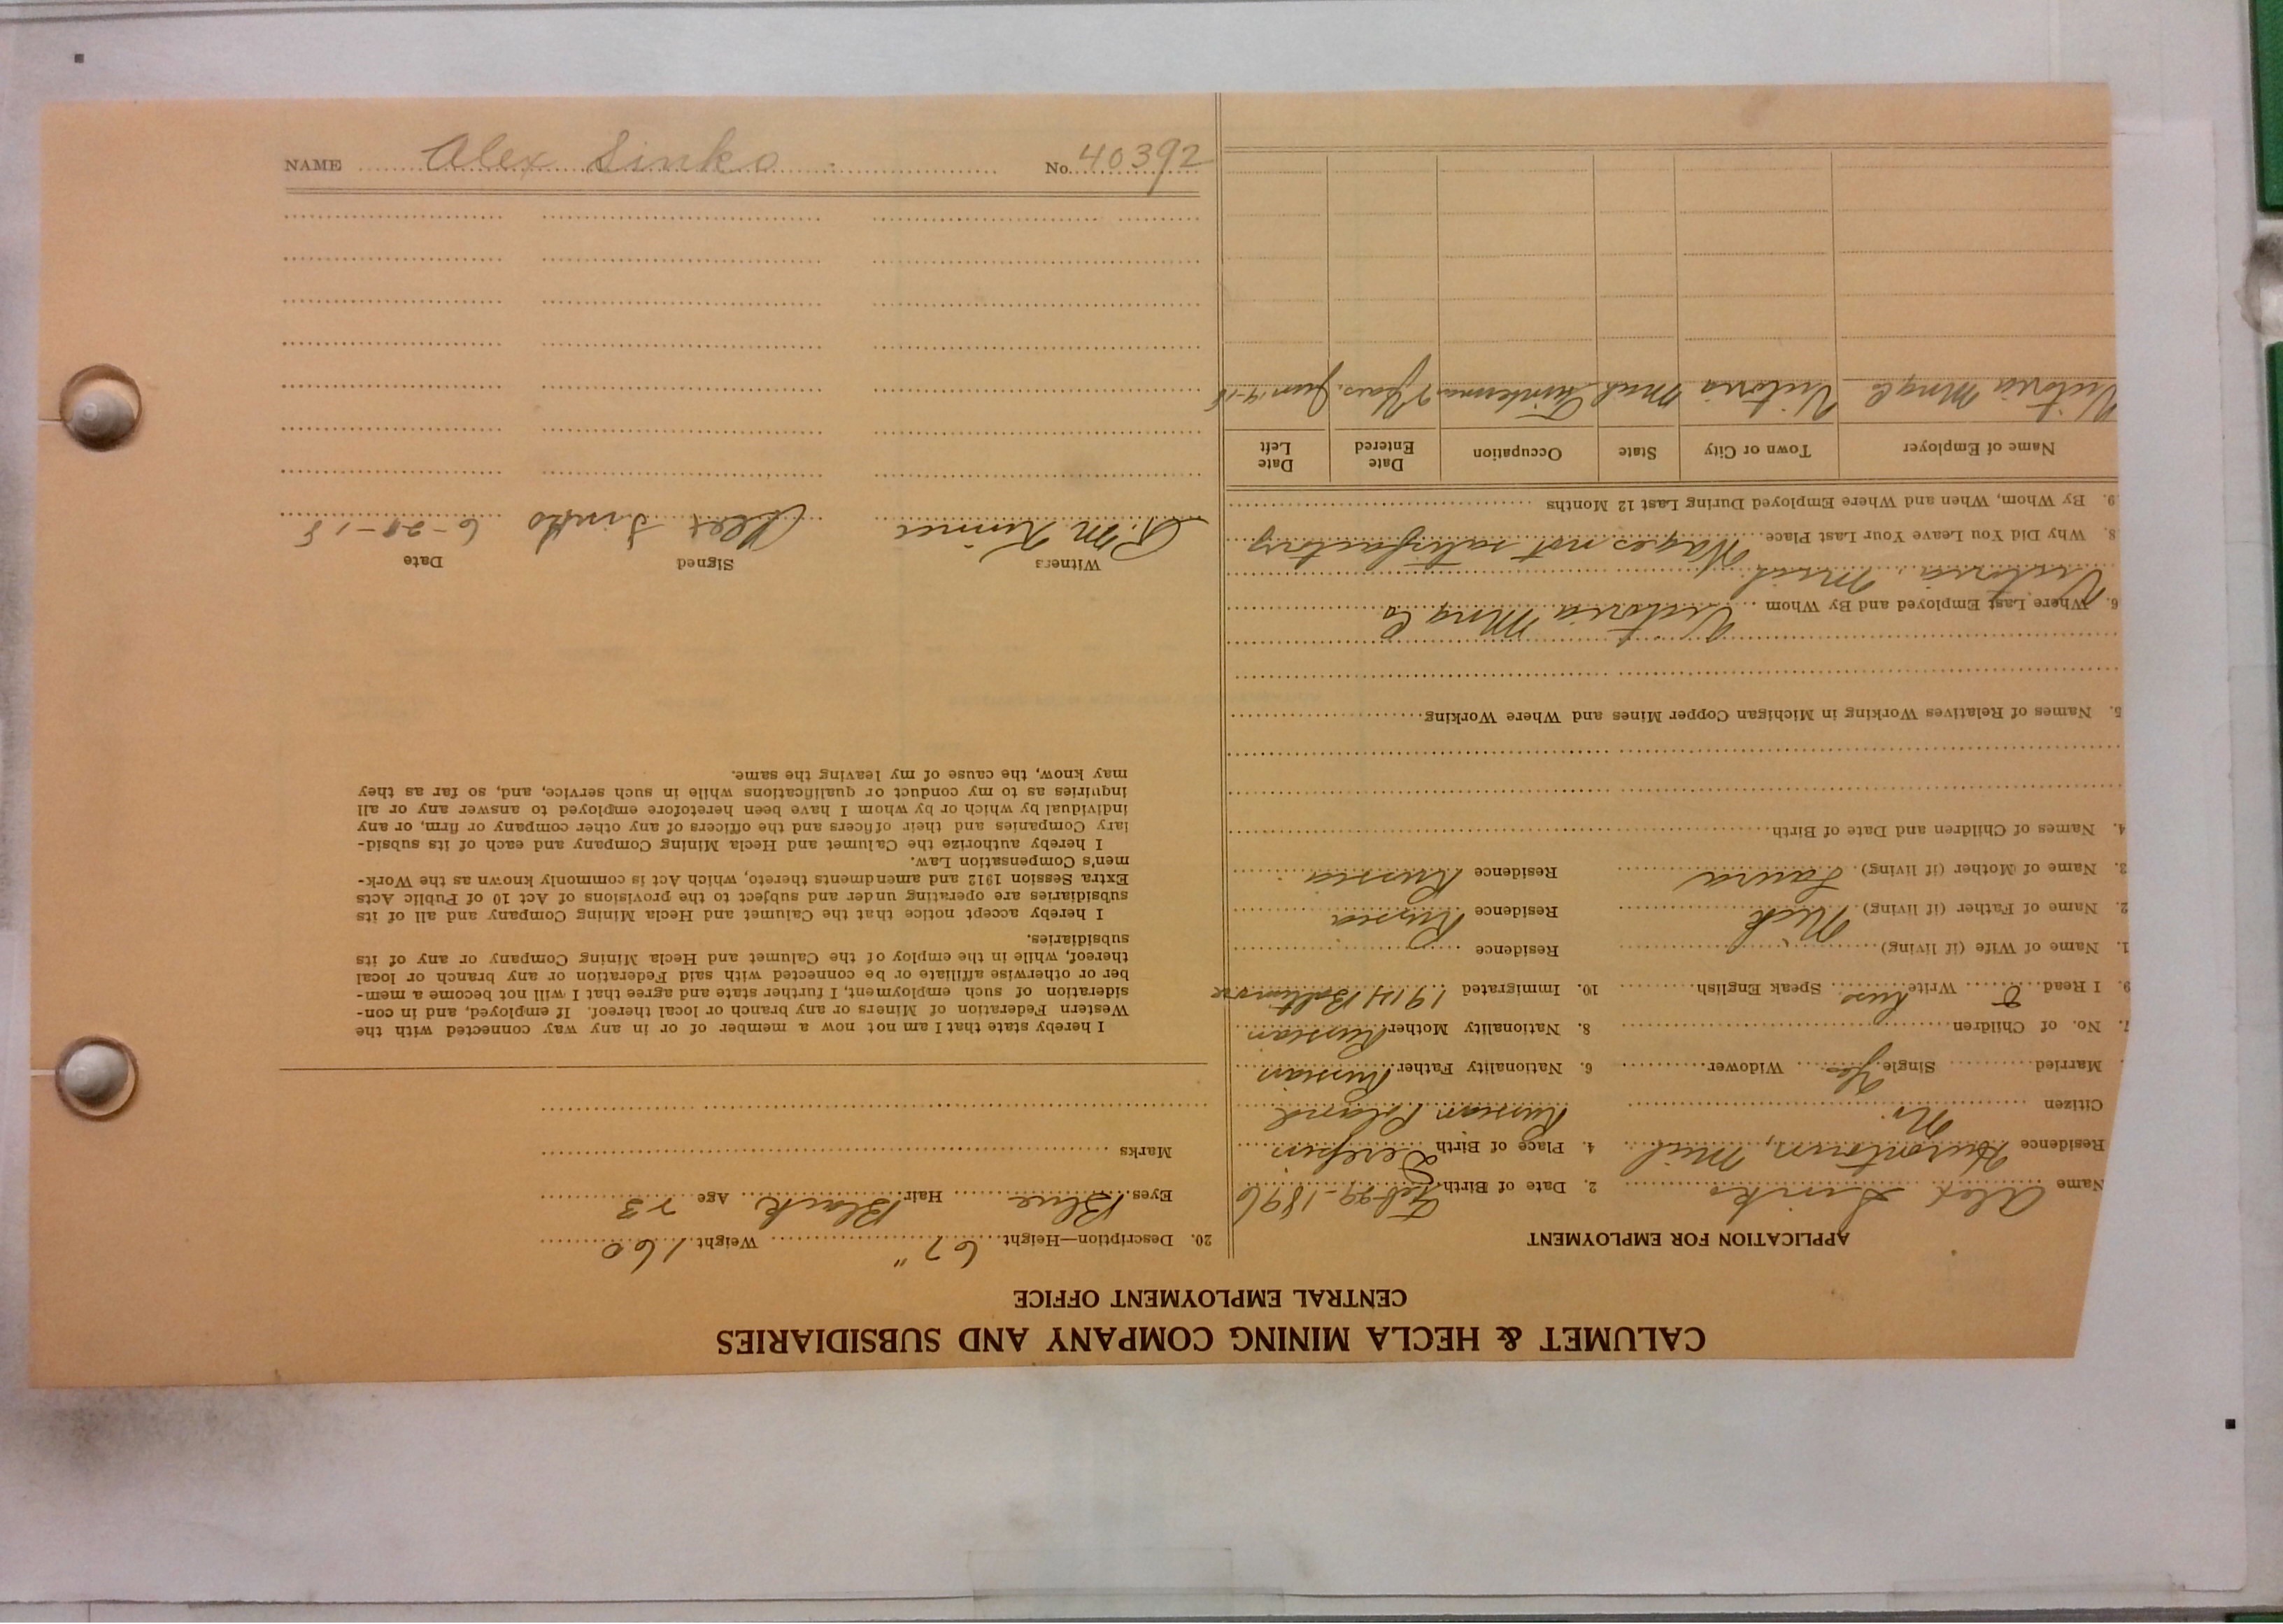 CALUMET & HECLA MINING COMPANY AND SUBSIDIARIES
CENTRAL EMPLOYMENT OFFICE
APPLICATION FOR EMPLOYMENT
Name Alex Sinko 2. Date of Birth Feb-29-1896
Residence Hurontown, Mich 4. Place of Birth
Citizen No. Russian Poland
Married Single Yes Widower 6. Nationality Father Russian
7. No. of Children 8. Nationality Mother Russian
9. I Read Write Russ Speak English 10. Immigrated 1914 Baltimore
1. Name of Wife (if living) Residence
2. Name of Father (if living) Nick Residence Russia
3. Name of Mother (if living) Laura Residence Russia
4. Names of Children and Date of Birth
5. Names of Relatives Working in Michigan Copper Mines and Where Working
6. Where Last Employed and By Whom Victoria Mng Co
Victoria, Mich.
8. Why Did You Leave Your Last Place Wages not satisfactory
9. By Whom, When and Where Employed During Last 12 Months
Name of Employer Town or City State Occupation Date Entered Date Left
Victoria Mng Co Victoria Mich Timberman 2 Years. June 14-18
20. Description—Height 67" Weight 160
Eyes Blue Hair Black Age 23
Marks
I hereby state that I am not now a member of or in any way connected with the
Western Federation of Miners or any branch or local thereof. If employed, and in con-
sideration of such employment, I further state and agree that I will not become a mem-
ber or otherwise affiliate or be connected with said Federation or any branch or local
thereof, while in the employ of the Calumet and Hecla Mining Company or any of its
subsidiaries.
I hereby accept notice that the Calumet and Hecla Mining Company and all of its
subsidiaries are operating under and subject to the provisions of Act 10 of Public Acts
Extra Session 1912 and amendments thereto, which Act is commonly known as the Work-
men's Compensation Law.
I hereby authorize the Calumet and Hecla Mining Company and each of its subsid-
iary Companies and their officers and the officers of any other company or firm, or any
individual by which or by whom I have been heretofore employed to answer any or all
inquiries as to my conduct or qualifications while in such service, and, so far as they
may know, the cause of my leaving the same.
Witness Signed Date
Alex Sinko 6-28-18
NAME Alex Sinko No. 40392